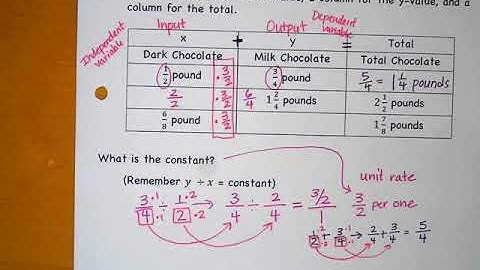 column for the total.
Input Output Dependent variable
Independent variable
x + y = Total
Dark Chocolate Milk Chocolate Total Chocolate
1/2 pound · 3/2 3/4 pound 5/4 = 1 1/4 pounds
2/2 · 3/2 6/4 1 2/4 pounds 2 1/2 pounds
6/8 pound · 3/2 1 7/8 pounds
What is the constant?
unit rate
(Remember y ÷ x = constant)
3·1/4·1 ÷ 1·2/2·2 → 3/4 ÷ 2/4 = 3/2/1 3/2 per one
1·2/2·2 + 3·1/4·1 → 2/4 + 3/4 = 5/4